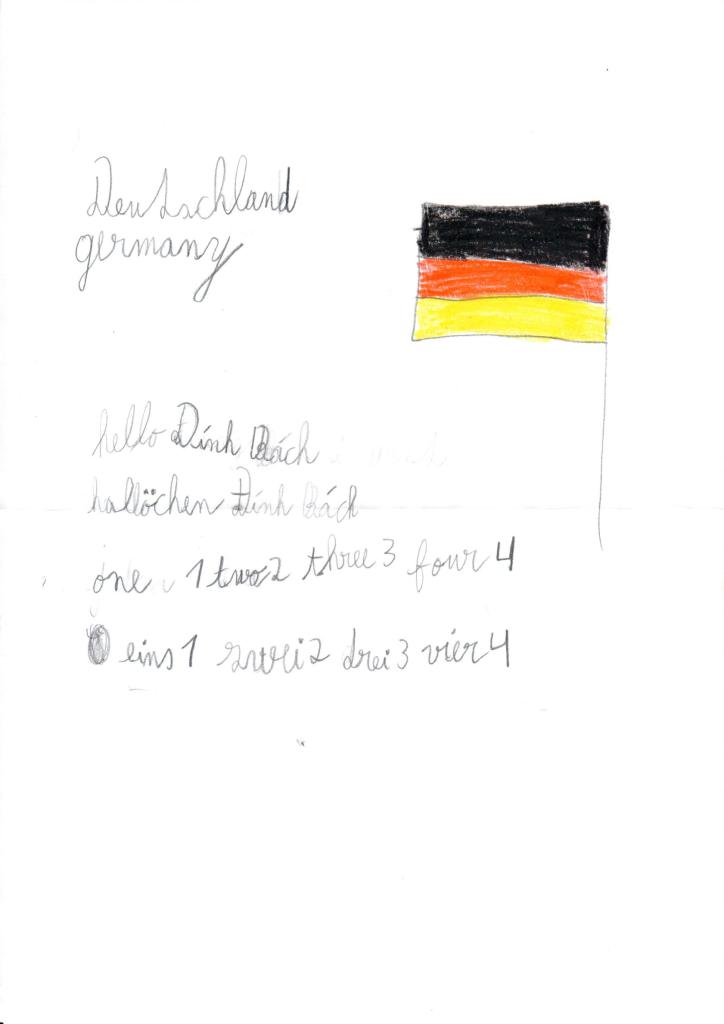 Deutschland
germany
hello Đính Bách
hallöchen Đính Bách
one 1 two 2 three 3 four 4
eins 1 zwei 2 drei 3 vier 4